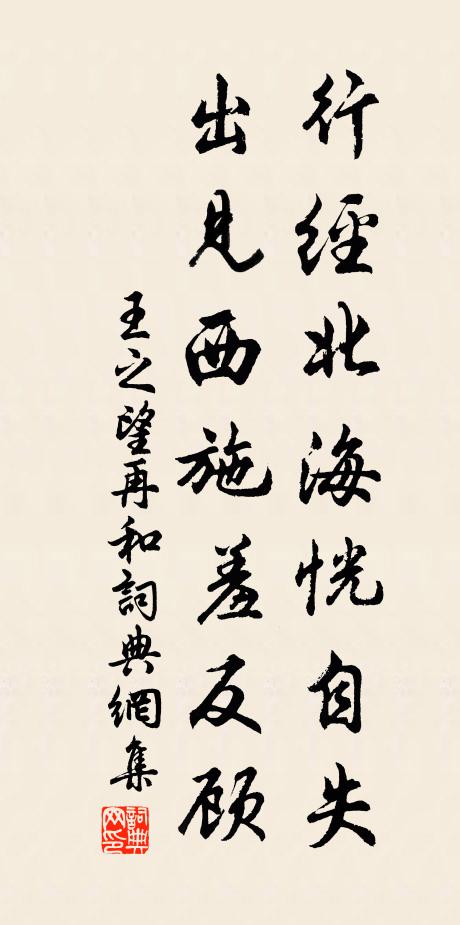 行經北海恍自失
出見西施羞反顾
王之望再和詞典網集
詞典網印